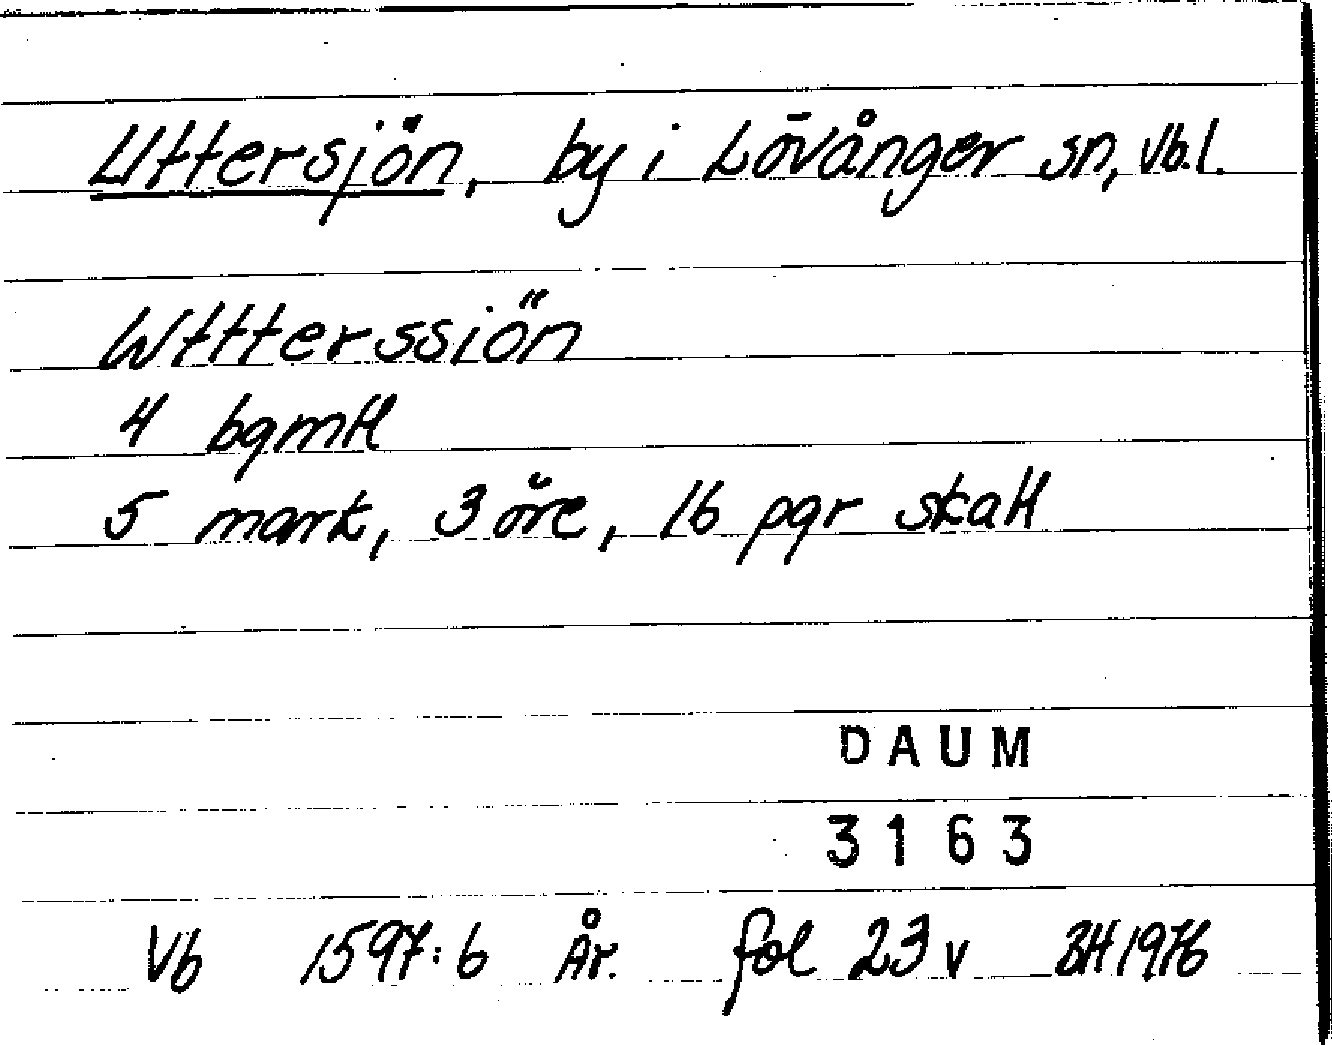 Uttersjön, by i Lövånger sn, Vb.l.
Wttterssiön
4 bgmtl
5 mark, 3 öre, 16 pgr skatt
DAUM
3163
Vb 1597:6 År. fol 23 v BH 1976